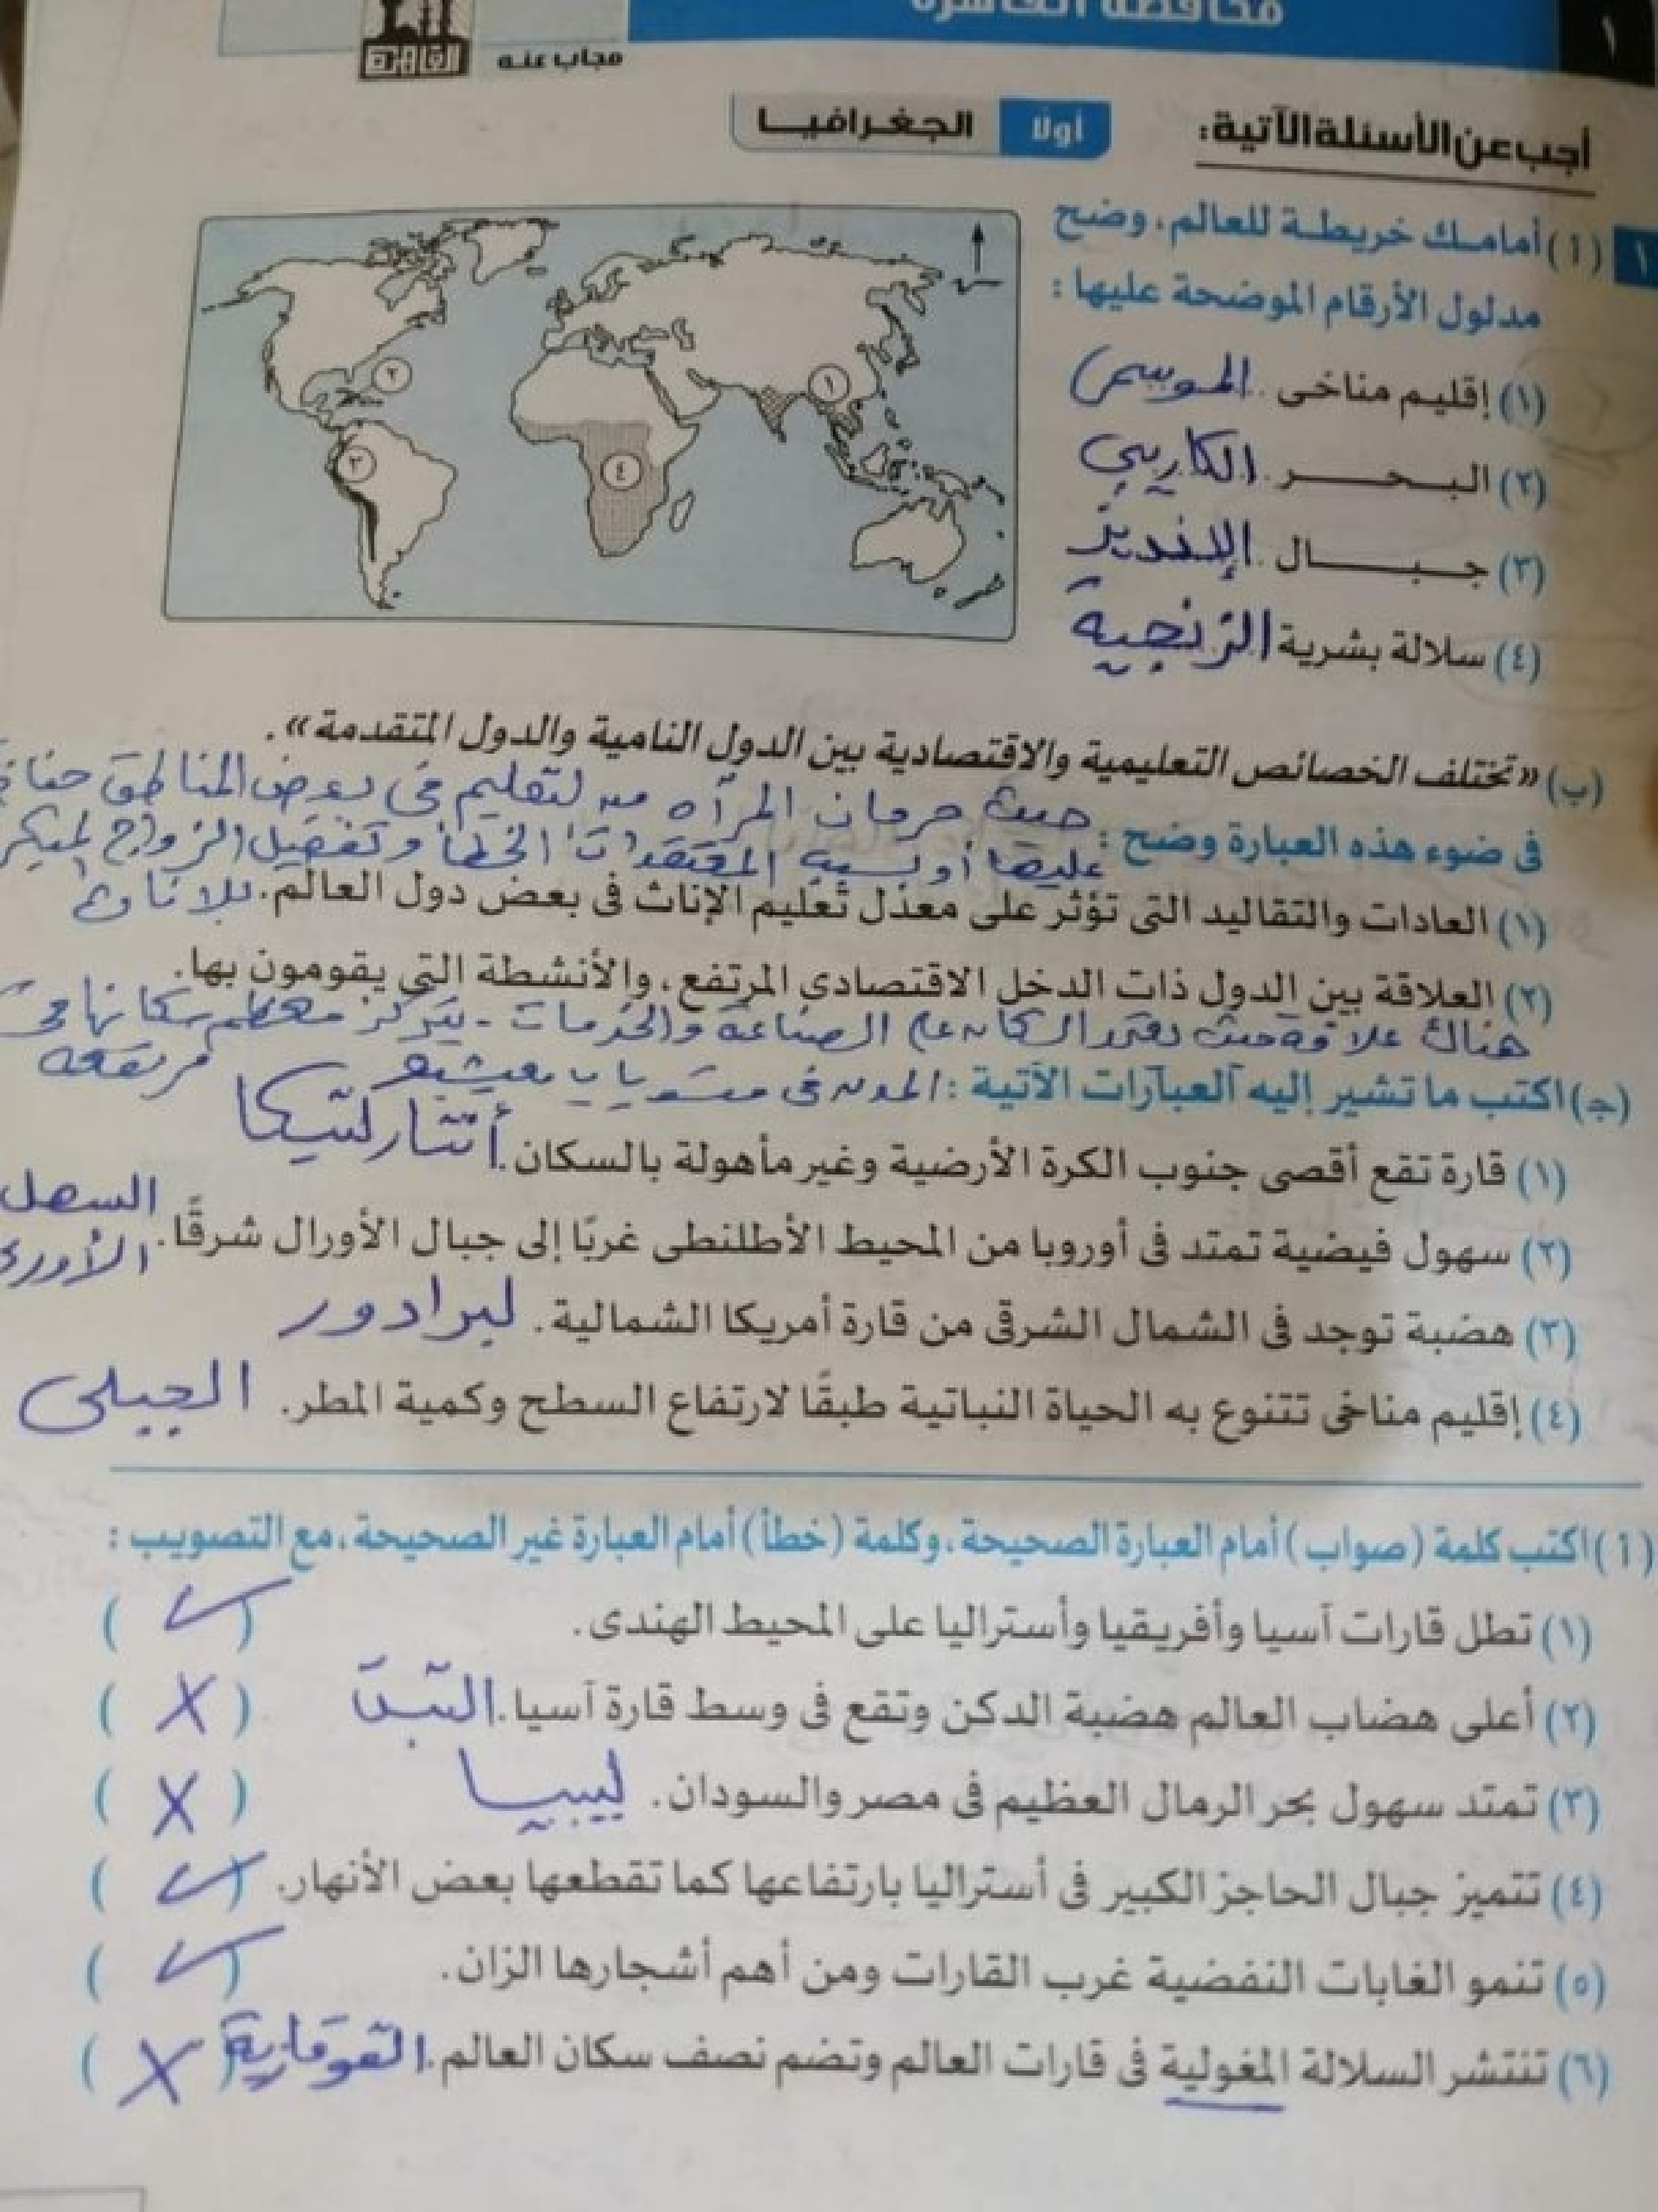 ١
محافظة القاهرة
القاهرة
مجاب عنه
أجب عن الأسئلة الآتية:
أولًا الجغرافيا
١ (أ) أمامك خريطة للعالم، وضح
مدلول الأرقام الموضحة عليها :
١
٢
٣
٤
(١) إقليم مناخى الموسمى
(٢) البحر الكاريبى
(٣) جبال الإنديز
(٤) سلالة بشرية الزنجية
(ب) «تختلف الخصائص التعليمية والاقتصادية بين الدول النامية والدول المتقدمة».
حيث حرمان المرآه من لتعليم فى بعض المناطق حفاظ
فى ضوء هذه العبارة وضح :
عليها أو بسبب المعتقدات الخطأ وتفضيل الزواج لمبكر
(١) العادات والتقاليد التى تؤثر على معدل تعليم الإناث فى بعض دول العالم. للاناث
(٢) العلاقة بين الدول ذات الدخل الاقتصادى المرتفع، والأنشطة التى يقومون بها.
هناك علاقة حيث يعتمد السكان على الصناعة والخدمات - يتركز معظم سكانها فى
(ج) اكتب ما تشير إليه العبارات الآتية : المدن فى مستويات معيشية مرتفعة
(١) قارة تقع أقصى جنوب الكرة الأرضية وغير مأهولة بالسكان. أنتاركتيكا
(٢) سهول فيضية تمتد فى أوروبا من المحيط الأطلنطى غربًا إلى جبال الأورال شرقًا. السهل
(٣) هضبة توجد فى الشمال الشرقى من قارة أمريكا الشمالية. لبرادور
(٤) إقليم مناخى تتنوع به الحياة النباتية طبقًا لارتفاع السطح وكمية المطر. الجبلى
(أ) اكتب كلمة (صواب) أمام العبارة الصحيحة، وكلمة (خطأ) أمام العبارة غير الصحيحة، مع التصويب :
(١) تطل قارات آسيا وأفريقيا وأستراليا على المحيط الهندى. ( ✓ )
(٢) أعلى هضاب العالم هضبة الدكن وتقع فى وسط قارة آسيا. التبت ( X )
(٣) تمتد سهول بحر الرمال العظيم فى مصر والسودان. ليبيا ( X )
(٤) تتميز جبال الحاجز الكبير فى أستراليا بارتفاعها كما تقطعها بعض الأنهار. ( ✓ )
(٥) تنمو الغابات النفضية غرب القارات ومن أهم أشجارها الزان. ( ✓ )
(٦) تنتشر السلالة المغولية فى قارات العالم وتضم نصف سكان العالم. القوقازية ( X )